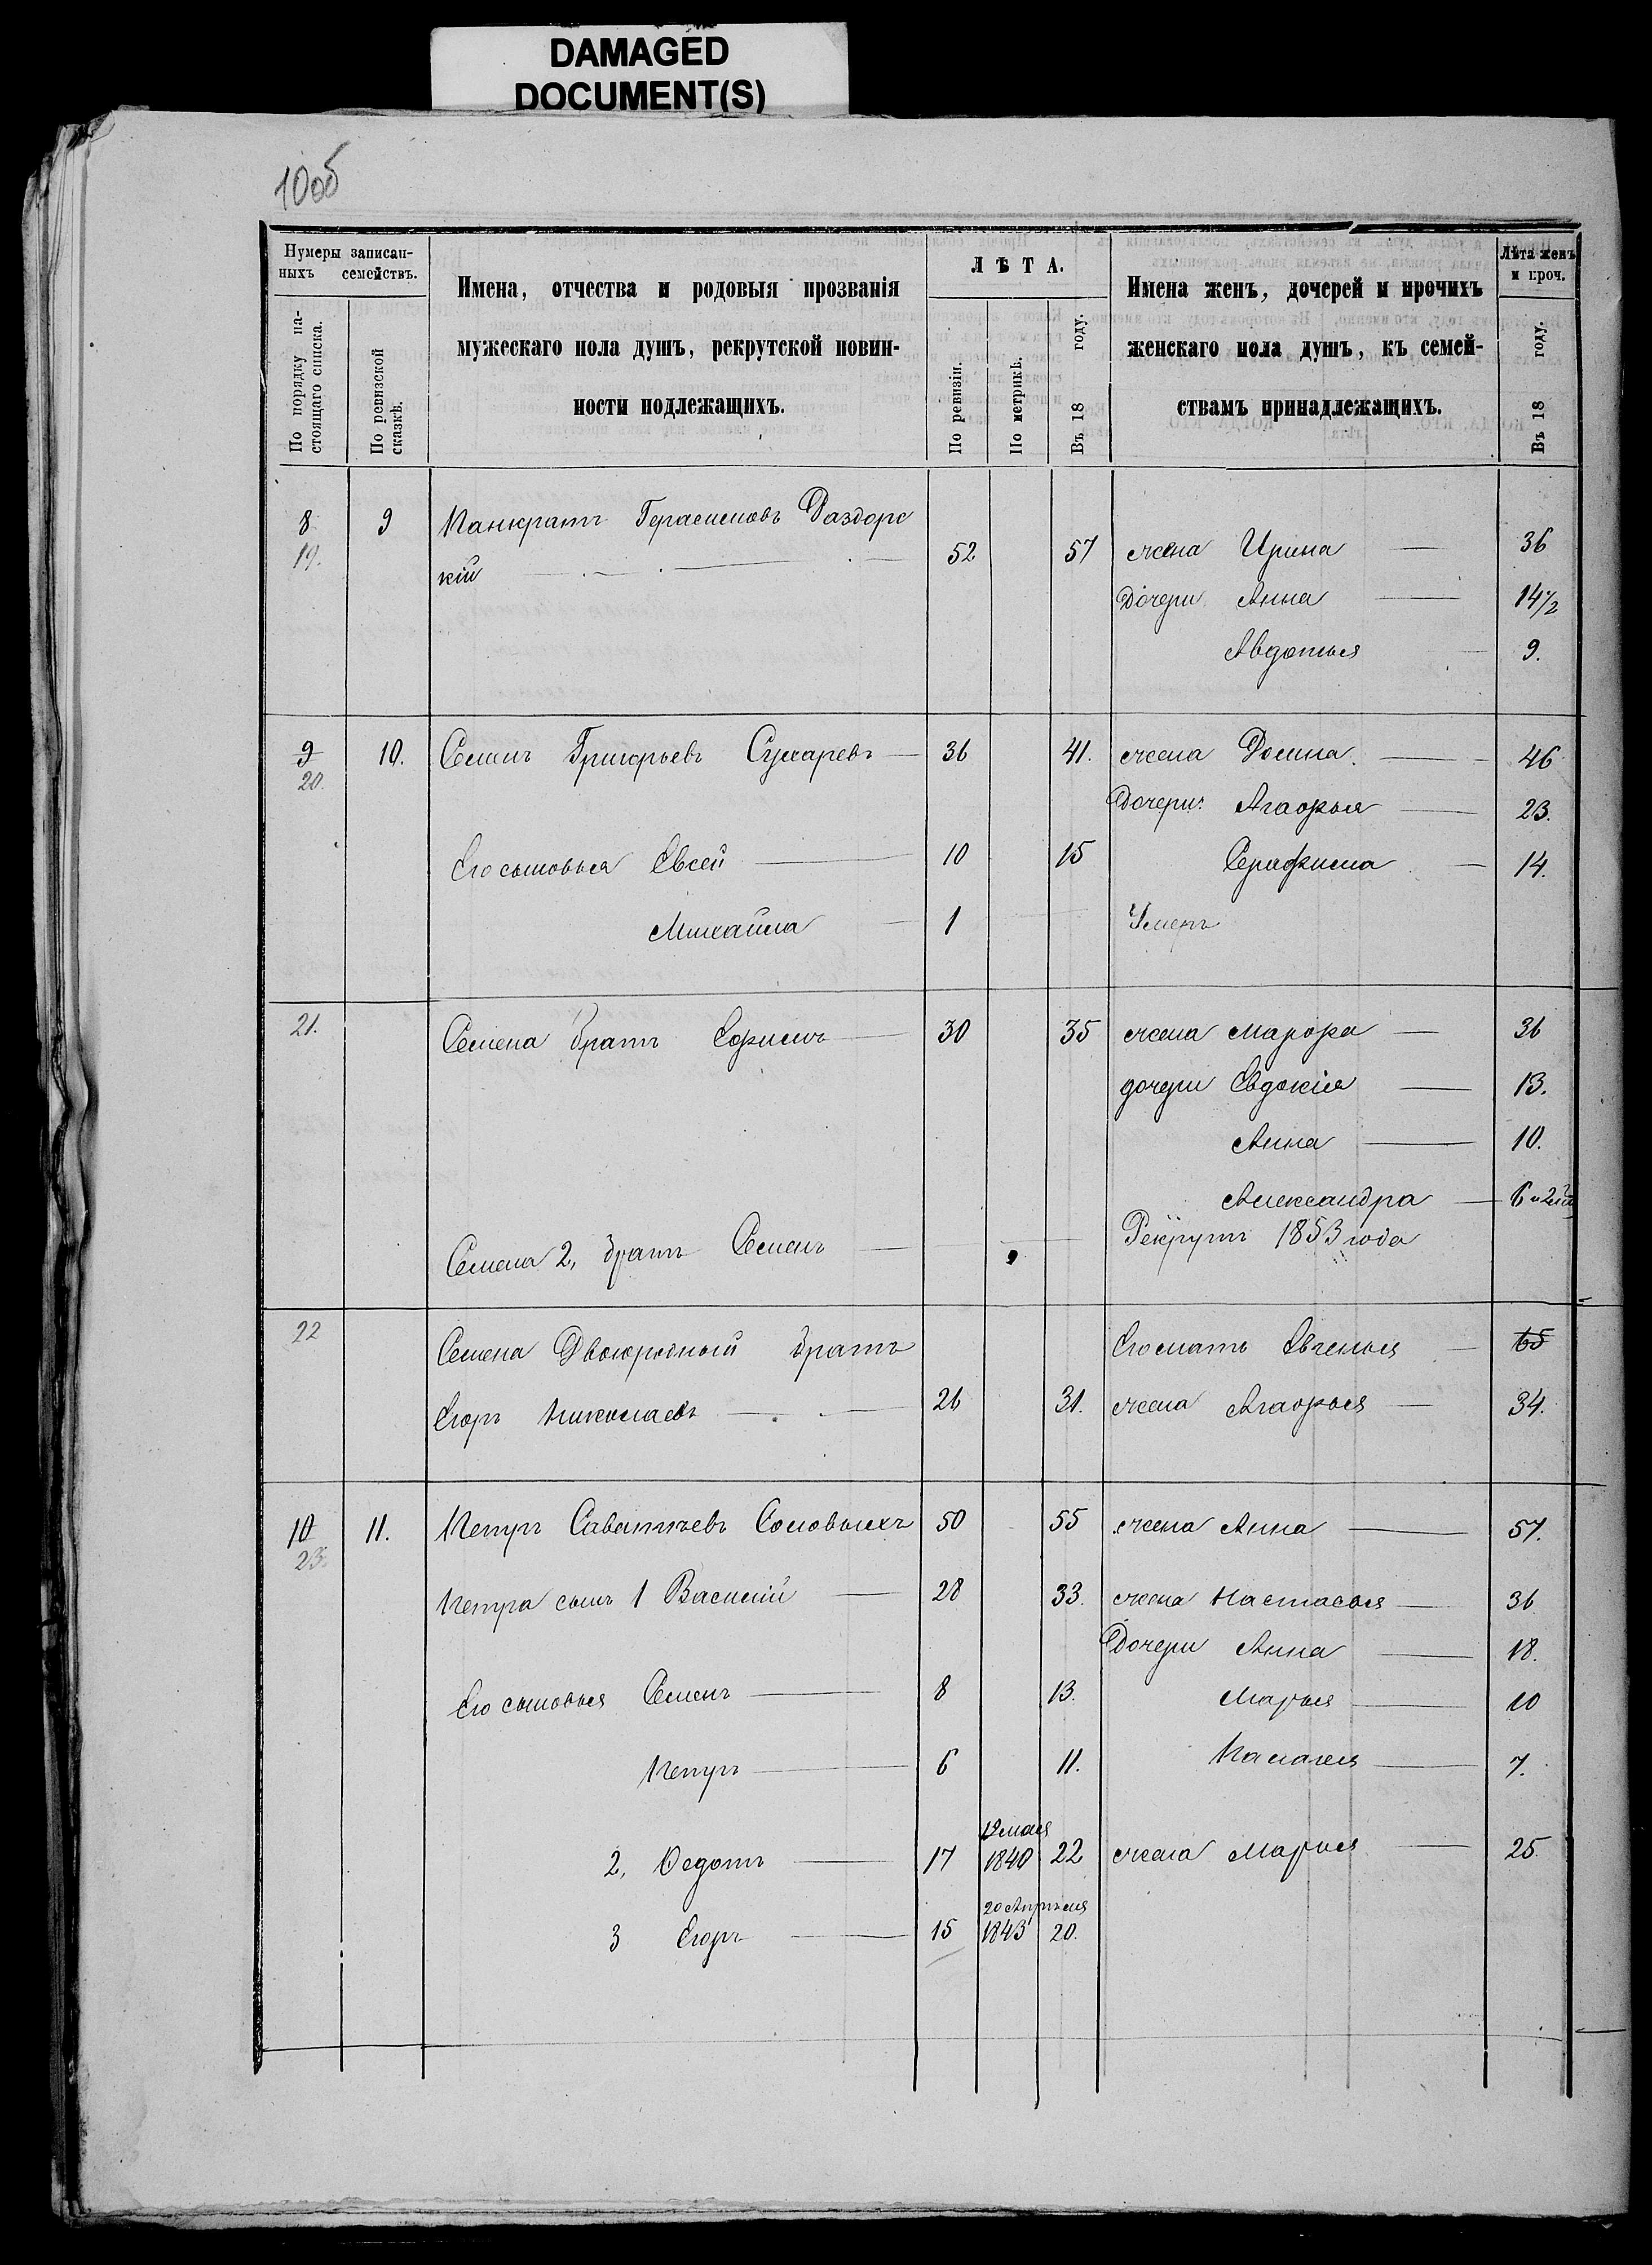 DAMAGED
DOCUMENT(S)
10об
Нумеры записан-
ныхъ семействъ.
По порядку на-
стоящаго списка.
По ревизской
сказкѣ.
Имена, отчества и родовыя прозванія
мужескаго пола душъ, рекрутской повин-
ности подлежащихъ.
ЛѢТА.
По ревизіи.
По метрикѣ.
Въ 18 году.
Имена женъ, дочерей и прочихъ
женскаго пола душъ, къ семей-
ствамъ принадлежащихъ.
Лѣта женъ
и проч.
Въ 18 году.
8 9 Панкратъ Герасимовъ Раздорс
19. кій 52 57 жена Ирина 36
Дочери Анна 14 1/2
Авдотья 9.
9 10. Семенъ Григорьевъ Сухаревъ 36 41. жена Домна 46
20. Дочери: Агафья 23.
Его сыновья Евсей 10 15 Серафима 14.
Михайла 1 Умеръ
21. Семена братъ Ефимъ 30 35 жена Марфа 36
дочери Евдокія 13.
Анна 10.
Александра 6
Семена 2, братъ Семенъ Рекрутъ 1853 года
22 Семена Двоюродный братъ Его мать Евгенья 65
Егоръ Николаевъ 26 31. жена Агафья 34.
10 11. Петръ Саватѣевъ Соловыхъ 50 55 жена Анна 57.
23.
Петра сынъ 1 Василій 28 33. жена Настасья 36
Дочери Анна 18.
Его сыновья Семенъ 8 13. Марья 10
Петръ 6 11. Палагея 7.
12 мая
2, Федотъ 17 1840 22 жена Марья 25.
20 Апрѣля
3 Егоръ 15 1843 20.